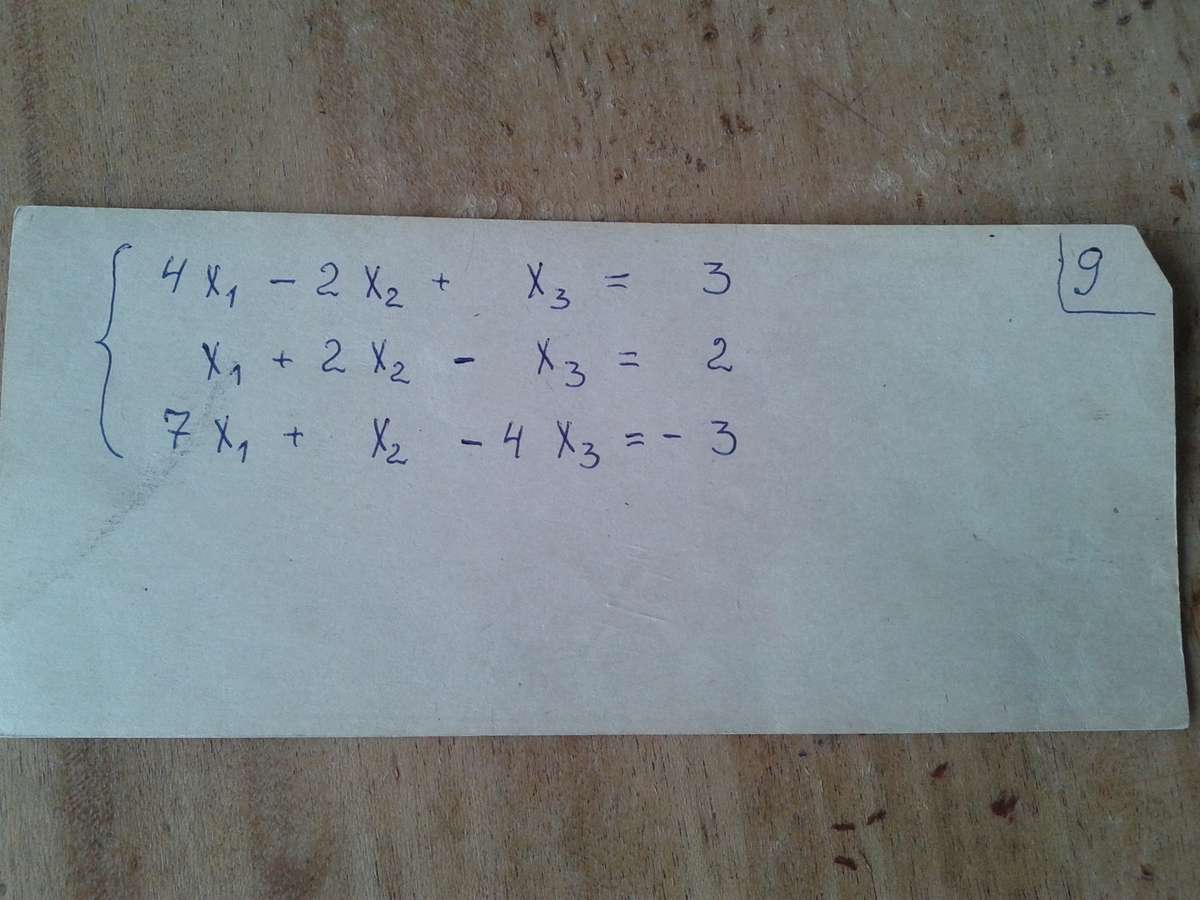 9
4x₁ - 2x₂ + x₃ = 3
x₁ + 2x₂ - x₃ = 2
7x₁ + x₂ - 4x₃ = - 3